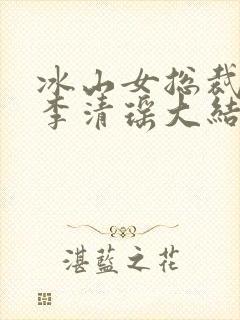 冰山女总裁
李清瑶大结
湛蓝之花